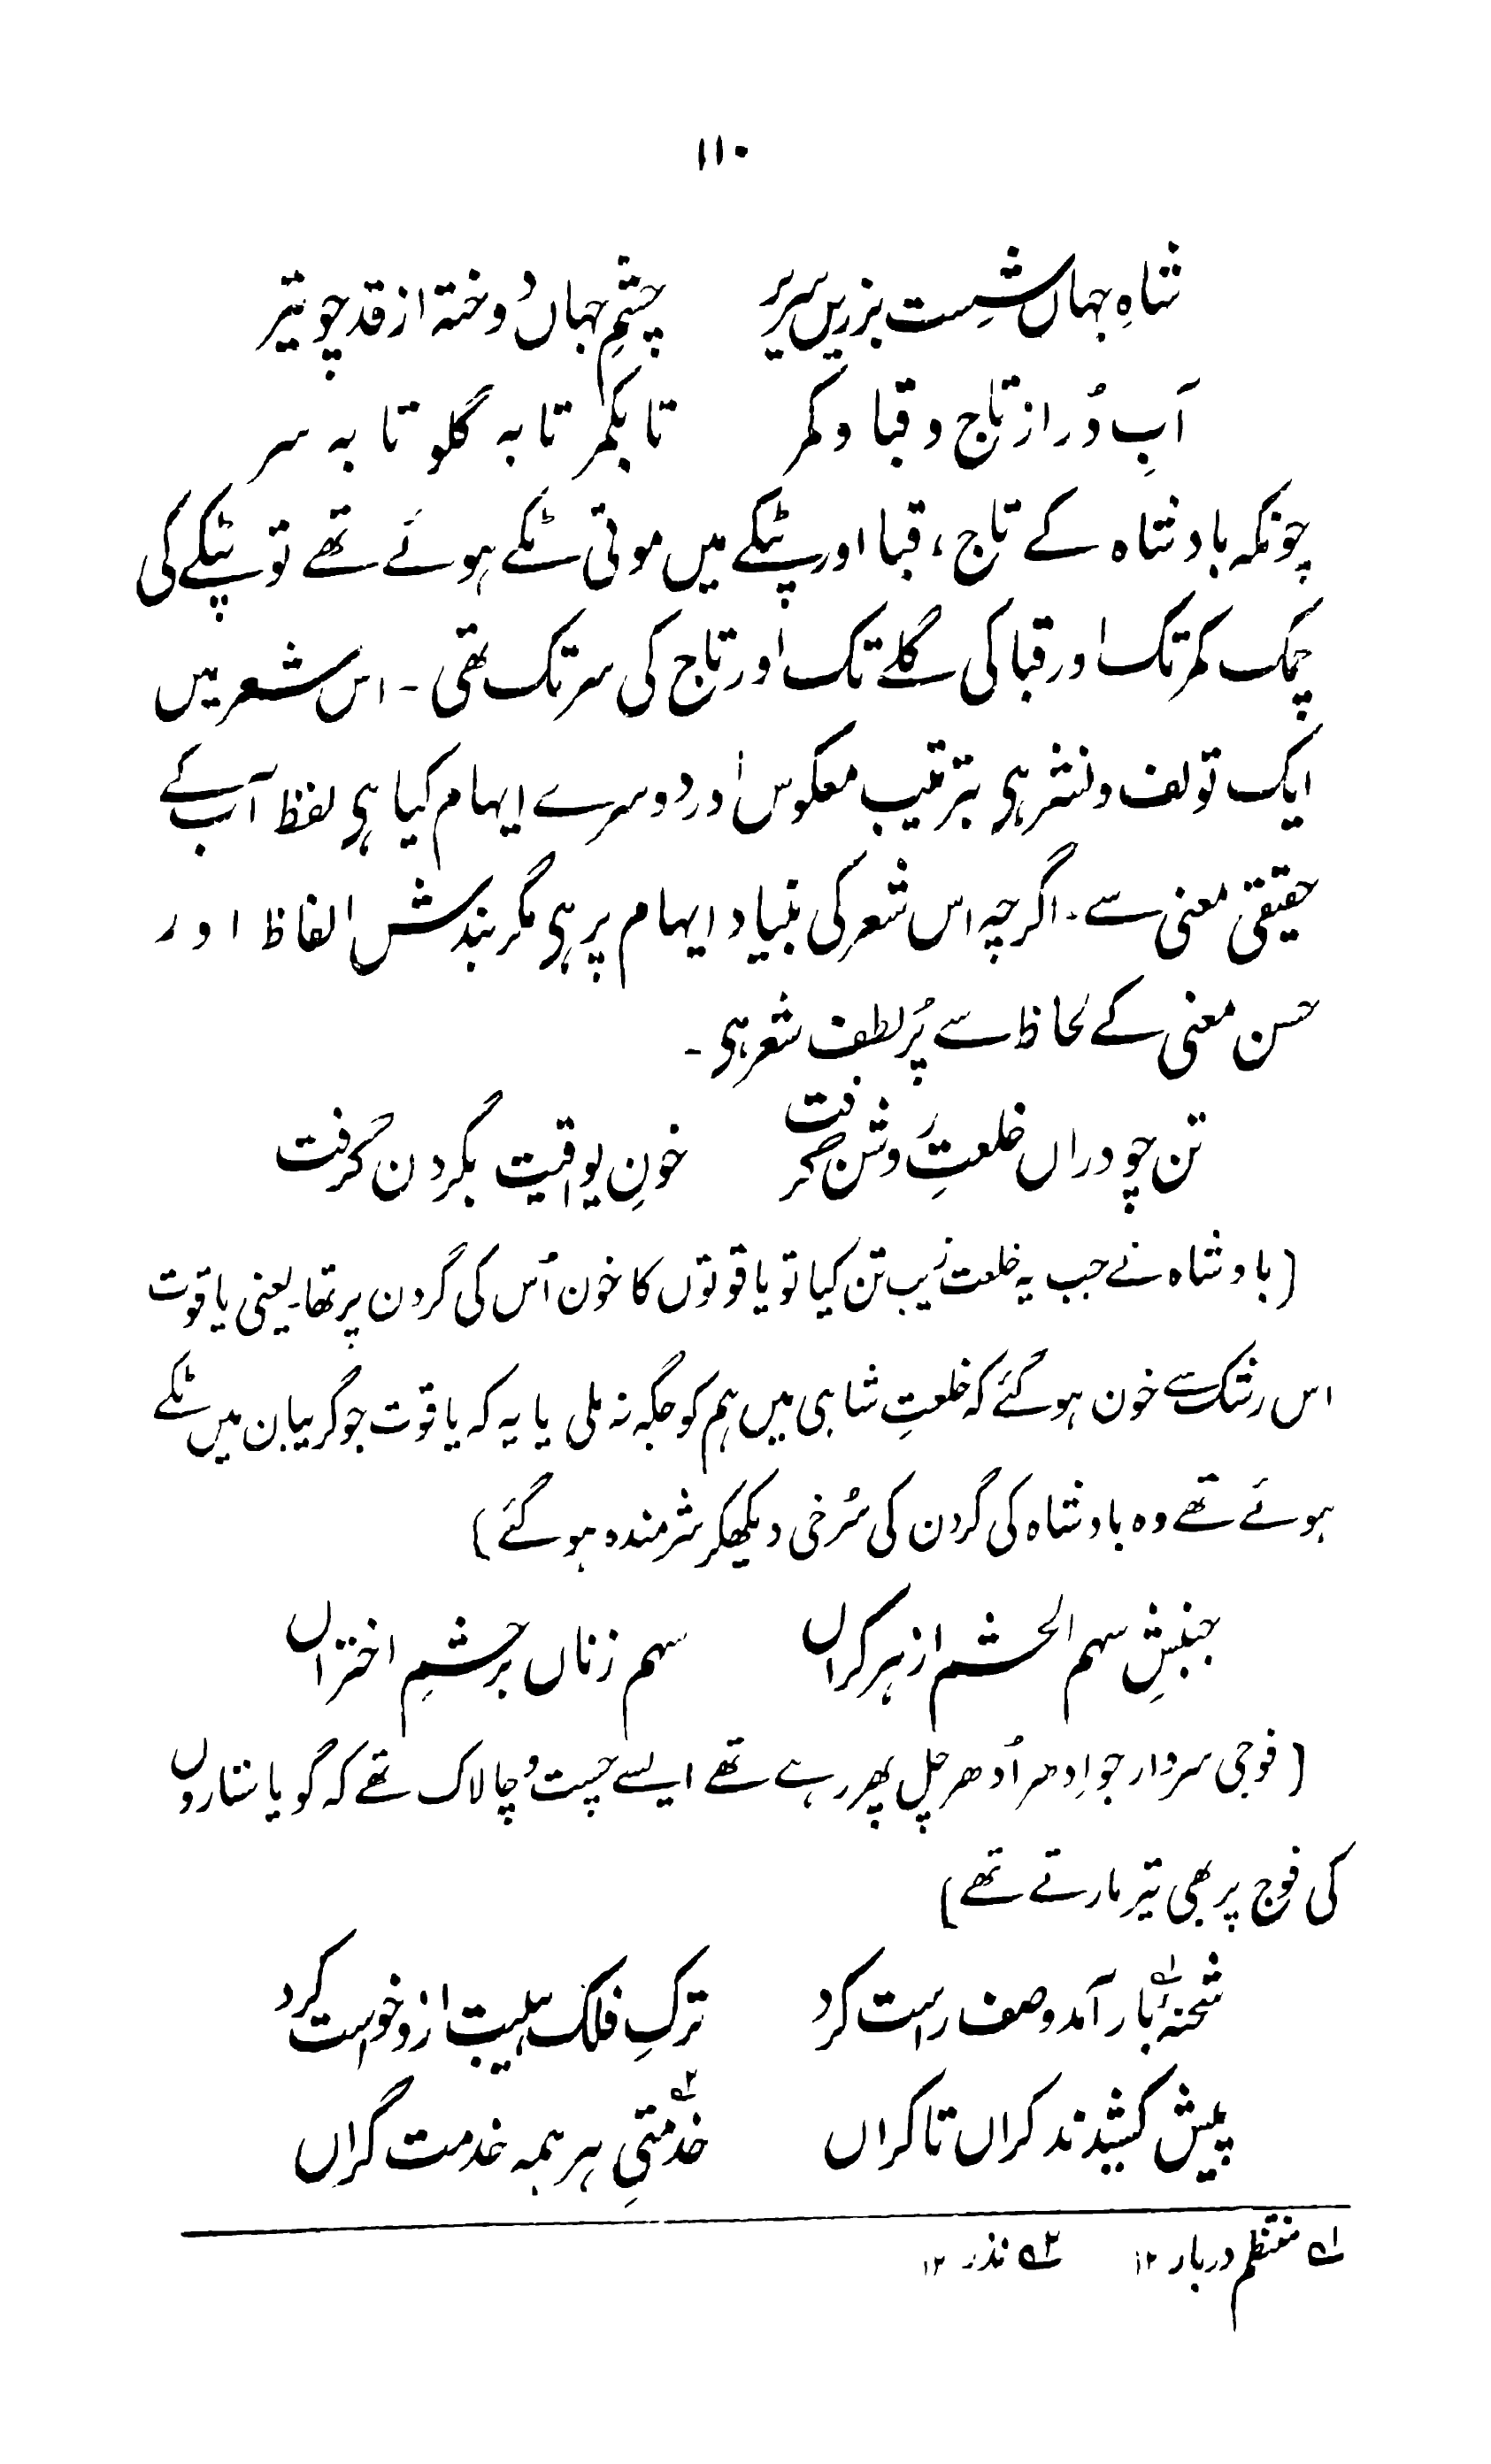 ۱۱۰
شاہِ جہاں شست بزریں سریر چشمِ جہاں دوختہ از قد چو تیر
آبِ دُر از تاج و قبا و کمر تا بکمر تا بہ گلو تا بہ سر
چونکہ بادشاہ کے تاج، قبا اور پٹکے میں موتی ٹکے ہوئے تھے تو پٹکے کی
چمک کمر تک اور قبا کی گلے تک اور تاج کی سر تک تھی۔ اس شعر میں
ایک تو لف و نشر ہی بترتیب معکوس اور دوسرے ایہام کیا ہی لفظ آب کے
حقیقی معنی سے۔ اگرچہ اس شعر کی بنیاد ایہام پر ہی مگر بندش الفاظ اور
حسن معنی کے لحاظ سے پُر لطف شعر ہی۔
تن چو دراں خلعتِ روشن گرفت خونِ یواقیت بگردن گرفت
(بادشاہ نے جب یہ خلعت زیب تن کیا تو یاقوتوں کا خون اُس کی گردن پر تھا۔ یعنی یاقوت
اس رشک سے خون ہو گئے کہ خلعتِ شاہی میں ہم کو جگہ نہ ملی یا یہ کہ یاقوت جو گریبان میں ٹکے
ہوئے تھے وہ بادشاہ کی گردن کی سُرخی دیکھکر شرمندہ ہو گئے)
جنبشِ سہم الحشم از ہر کراں سہم زناں بر حشمِ اختراں
(فوجی سردار جو اِدھر اُدھر چل پھر رہے تھے ایسے چست و چالاک تھے کہ گویا ستاروں
کی فوج پر بھی تیر مارتے تھے)
شحنۂ۱؎ بار آمد و صف راست کرد ترکِ فلک ہیبت ازو خواست کرد
پیش کشیدند کراں تا کراں خدمتیِ۲؎ ہر ہمہ خدمت گراں
۱؎ منتظم دربار ۱۲ ۲؎ نذر ۱۲